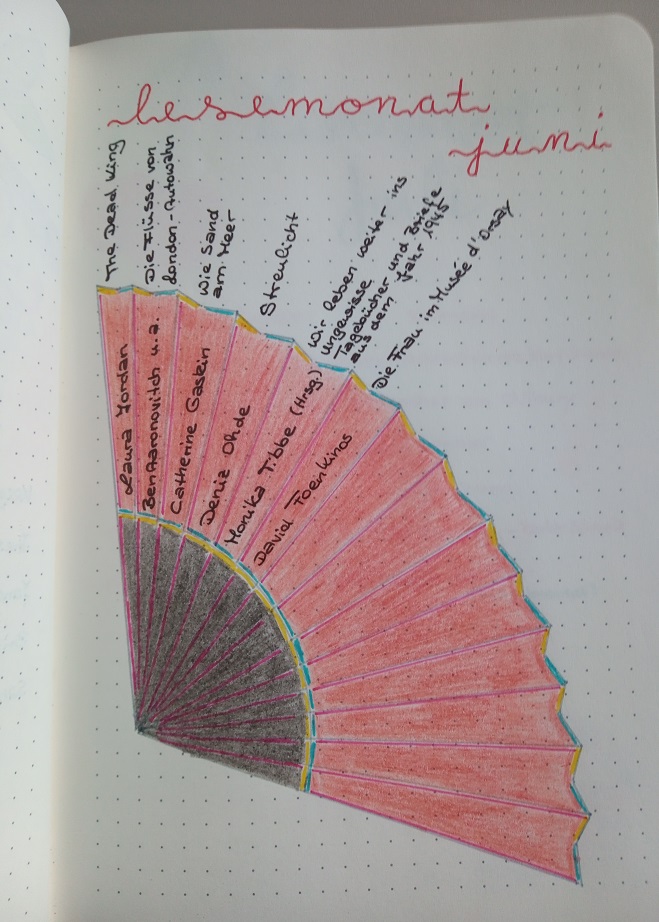 lesemonat
juni
The Dead King
Die Flüsse von
London - Autowahn
Wie Sand
am Meer
Streulicht
Wir leben weiter ins
ungewisse
Tagebücher und Briefe
aus dem Jahr 1945
Die Frau im Musée d'Orsay
Laura Jordan
Ben Aaronovitch u.a.
Catherine Gaskin
Deniz Ohde
Monika Tibbe (Hrsg.)
David Foenkinos